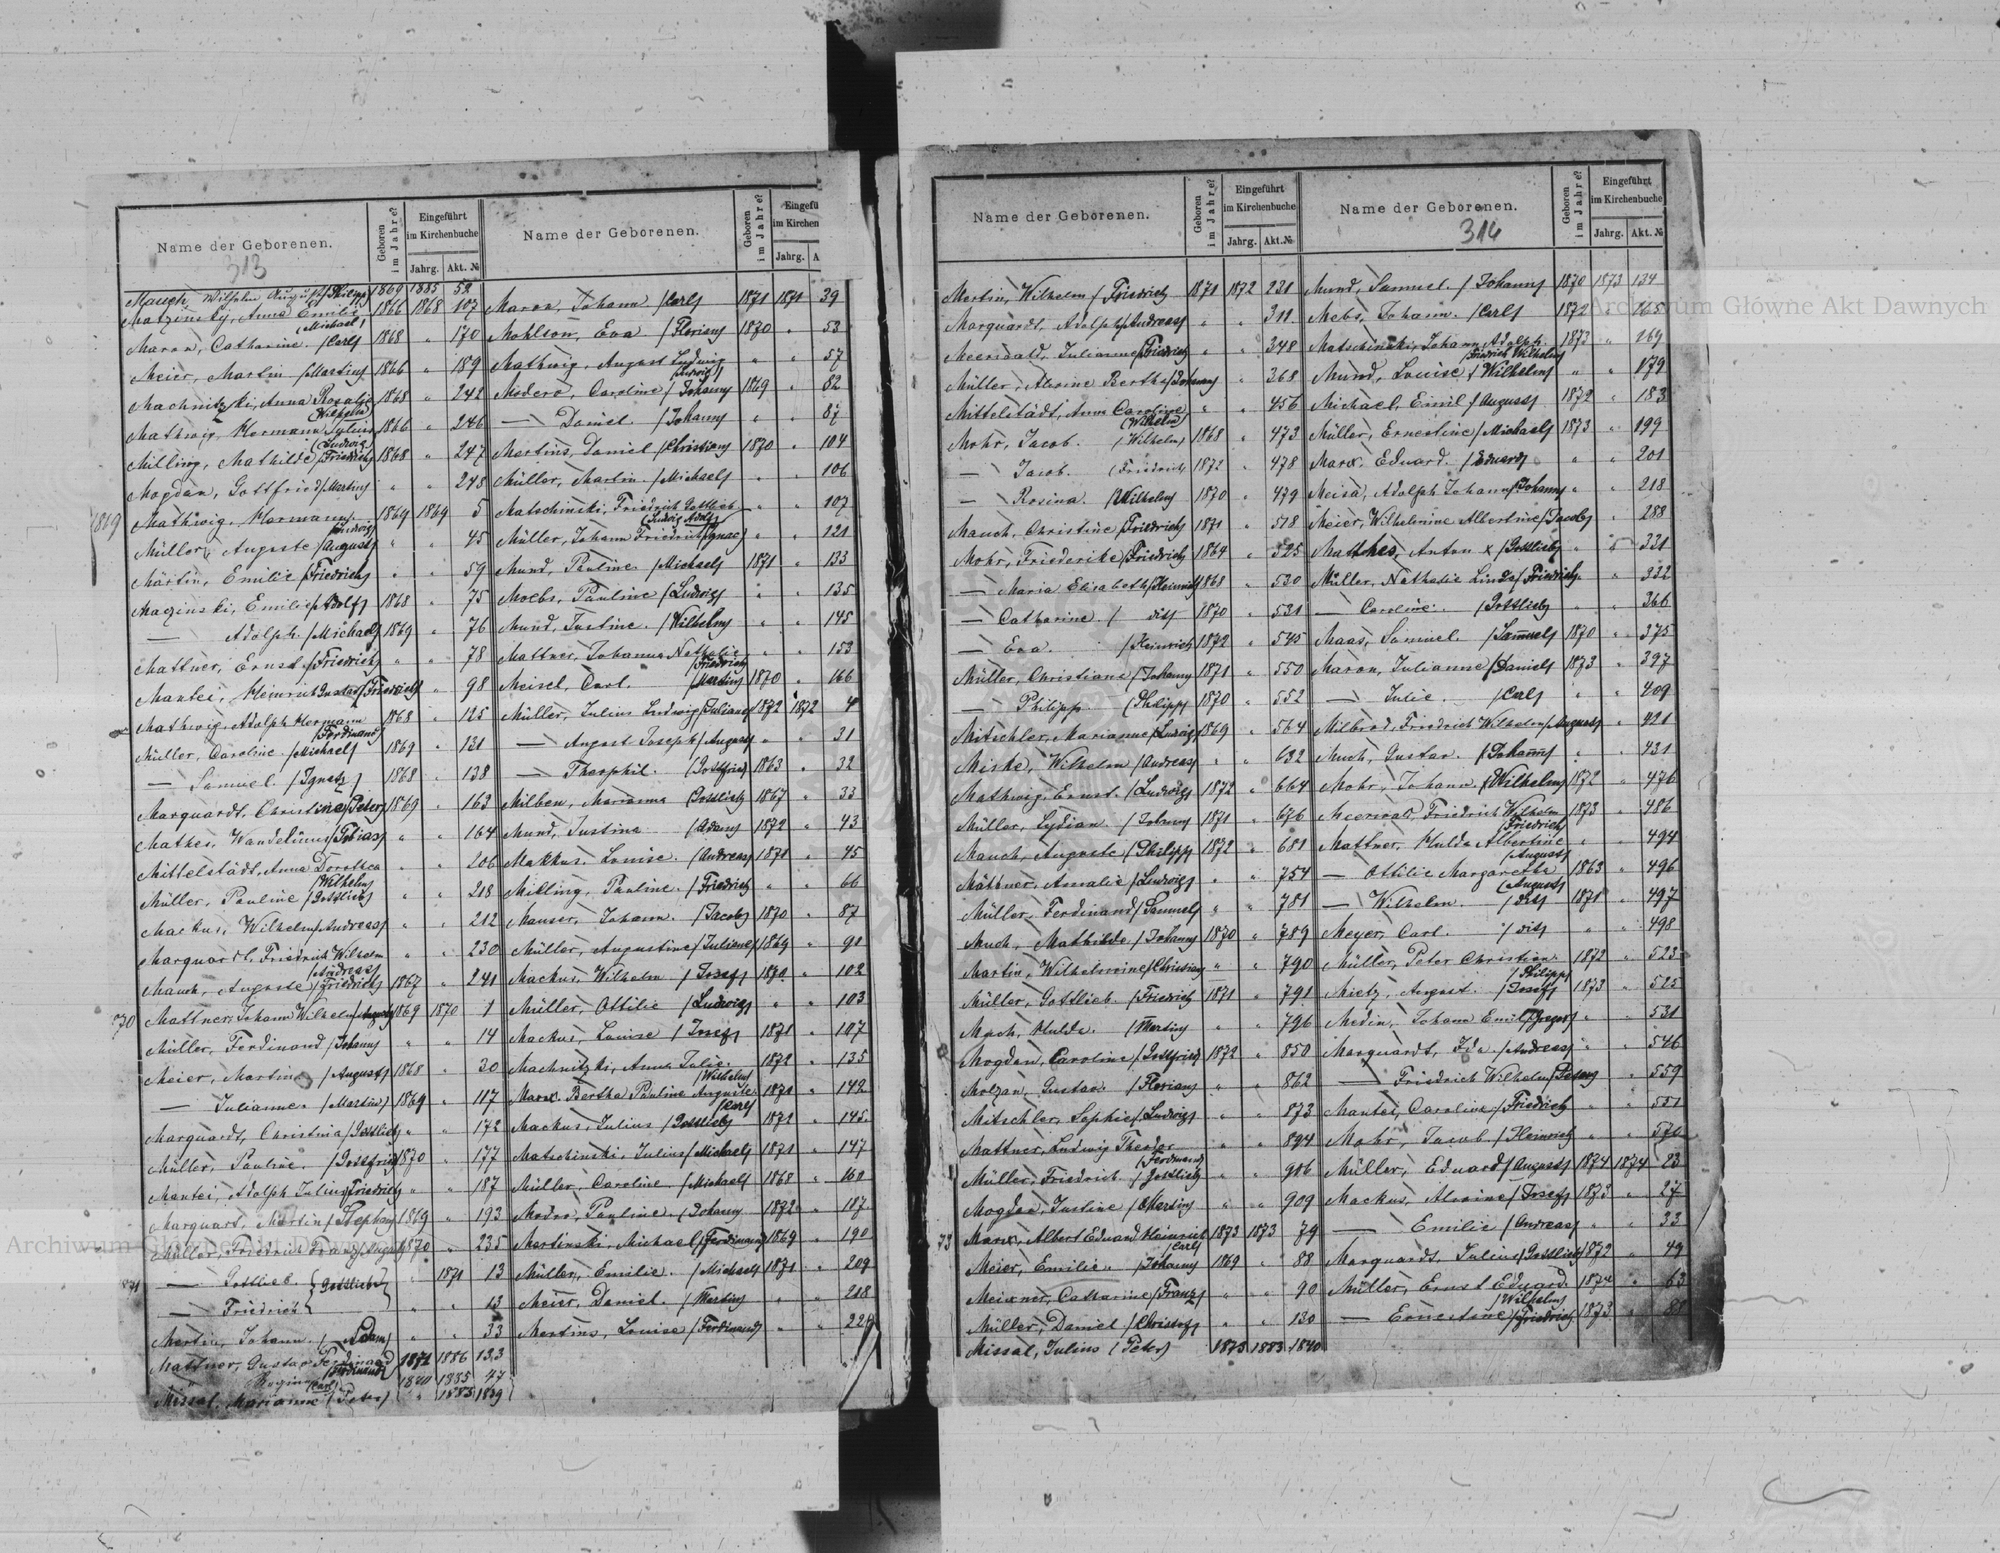 Name der Geborenen.
Geboren im Jahre?
Eingeführt im Kirchenbuche
Jahrg.
Akt. №
313
Mauch, Wilhelm August (Philipp) 1869 1885 52
Matzinsky, Anna Emilie (Michael) 1866 1868 107
Maron, Catharine (Carl) 1868 " 170
Meier, Martin (Martin) 1866 " 189
Machnitzki, Anna Rosalie (Wilhelm) 1868 " 242
Mathwig, Hermann Julius (Ludwig) 1866 " 246
Milling, Mathilde (Friedrich) 1868 " 247
Mogdan, Gottfried (Martin) " " 248
1869 Mathwig, Hermann (Ludwig) 1869 1869 5
Müller, Auguste (August) " " 45
Martin, Emilie (Friedrich) " " 59
Mazinski, Emilie (Adolf) 1868 " 75
— Adolph (Michael) 1869 " 76
Mattner, Ernst (Friedrich) " " 78
Mantei, Heinrich Gustav (Friedrich) " " 98
Mathwig, Adolph Hermann (Ferdinand) 1868 " 125
Müller, Caroline (Michael) 1869 " 131
— Samuel (Ignatz) 1868 " 138
Marquardt, Christine (Peter) 1869 " 163
Mathes, Wandeline (Tobias) " " 164
Mittelstädt, Anna Dorothea (Wilhelm) " " 206
Müller, Pauline (Gottlieb) " " 218
Mackus, Wilhelm (Andreas) " " 212
Marquardt, Friedrich Wilhelm (Andreas) " " 230
Mauch, Auguste (Friedrich) 1867 " 241
70 Mattner, Johann Wilhelm (August) 1869 1870 1
Müller, Ferdinand (Johann) " " 14
Meier, Martin (August) 1868 " 30
— Julianne (Martin) 1869 " 117
Marquardt, Christina (Gottlieb) " " 172
Müller, Pauline (Gottfried) 1870 " 177
Mantei, Adolph Julius (Friedrich) " " 187
Marquart, Martin (Stephan) 1869 " 193
Müller, Friedrich Franz (August) 1870 " 235
71 — Gottlieb } (Gottlieb) " 1871 13
— Friedrich } " " 13
Martin, Johann (Adam) " " 33
Mattner, Gustav Ferdinand (Ferdinand) 1871 1886 133
" Regine (Carl) 1870 1885 47
Missal, Marianne (Peter) " 1883 1839
Name der Geborenen.
Geboren im Jahre?
Eingefü
im Kirchen
Jahrg.
A
Maron, Johann (Carl) 1871 1871 39
Mohlson, Eva (Florian) 1870 " 53
Mathwig, August Ludwig (Ludwig) " " 57
Modero, Caroline (Johann) 1869 " 82
— Daniel (Johann) " " 87
Martins, Daniel (Christian) 1870 " 104
Müller, Martin (Michael) " " 106
Matschinski, Friedrich Gottlieb (Ludwig Adolf) " " 107
Müller, Johann Friedrich (Ignac) " " 121
Mund, Pauline (Michael) 1871 " 133
Moebs, Pauline (Ludwig) " " 135
Mund, Justine (Wilhelm) " " 145
Mattner, Johanna Nathalie (Friedrich) " " 153
Meisel, Carl (Martin) 1870 " 166
Müller, Julius Ludwig (Juliane) 1872 1872 4
— August Joseph (August) " " 31
— Theophil (Gottfried) 1863 " 32
Milben, Marianna (Gottlieb) 1867 " 33
Mund, Justine (Adam) 1872 " 43
Makkus, Louise (Andreas) 1871 " 45
Milling, Pauline (Friedrich) " " 66
Mauser, Johann (Jacob) 1870 " 87
Müller, Augustine (Juliane) 1869 " 91
Mackus, Wilhelm (Josef) 1870 " 102
Müller, Ottilie (Ludwig) " " 103
Mackus, Louise (Josef) 1871 " 107
Machnitzki, Anna Julie (Wilhelm) 1872 " 135
Marx, Bertha Pauline Auguste (Carl) 1871 " 142
Mackus, Julius (Gottlieb) 1872 " 145
Matschinski, Julius (Michael) 1871 " 147
Müller, Caroline (Michael) 1868 " 160
Modro, Pauline (Johann) 1872 " 187
Martinski, Michael (Ferdinand) 1869 " 190
Müller, Emilie (Michael) 1871 " 209
Meier, Daniel (Martin) " " 218
Martins, Louise (Ferdinand) " " 229
Name der Geborenen.
Geboren im Jahre?
Eingeführt im Kirchenbuche
Jahrg.
Akt. №
Martin, Wilhelm (Friedrich) 1871 1872 231
Marquardt, Adolph (Andreas) " " 311
Meerwald, Julianne (Friedrich) " " 348
Müller, Alwine Bertha (Johann) " 368
Mittelstädt, Anna Caroline (Wilhelm) " " 456
Mohr, Jacob (Wilhelm) 1868 " 473
— Jacob (Friedrich) 1872 " 478
— Rosina (Wilhelm) 1870 " 479
Mauch, Christine (Friedrich) 1871 " 518
Mohr, Friederike (Friedrich) 1864 " 525
— Maria Elisabeth (Heinrich) 1868 " 530
— Catharine (dit) 1870 " 531
— Eva (Heinrich) 1872 " 545
Müller, Christiane (Johann) 1871 " 550
— Philipp (Philipp) 1870 " 552
Mitschler, Marianne (Ludwig) 1869 " 564
Miske, Wilhelm (Andreas) " " 632
Mathwig, Ernst (Ludwig) 1872 " 664
Müller, Lydian (Johann) 1871 " 676
Mauch, Auguste (Philipp) 1872 " 681
Mattner, Amalie (Ludwig) " " 754
Müller, Ferdinand (Samuel) " " 781
Much, Mathilde (Johann) 1870 " 789
Martin, Wilhelmine (Christian) " " 790
Müller, Gottlieb (Friedrich) 1871 " 791
Mach, Hulda (Martin) " " 796
Mogdan, Caroline (Gottfried) 1872 " 850
Molzan, Gustav (Florian) " " 862
Mitschler, Sophie (Ludwig) " " 873
Mattner, Ludwig Theodor (Ferdinand) " " 894
Müller, Friedrich (Gottlieb) " " 906
Mogdan, Justine (Martin) " " 909
73 Marx, Albert Eduard Heinrich (Carl) 1873 1873 79
Meier, Emilie (Johann) 1869 " 88
Meixner, Catharine (Franz) " " 90
Müller, Daniel (Christof) " " 130
Missal, Julius (Peter) 1873 1883 1840
Name der Geborenen.
314
Geboren im Jahre?
Eingeführt im Kirchenbuche
Jahrg.
Akt. №
Mund, Samuel (Johann) 1870 1873 134
Mebs, Johann (Carl) 1872 " 165
Matschinski, Johann Adolph (Friedrich Wilhelm) 1873 " 169
Mund, Louise (Wilhelm) " " 179
Michael, Emil (August) 1872 " 183
Müller, Ernestine (Michael) 1873 " 199
Marx, Eduard (Eduard) " " 201
Meisa, Adolph Johann (Johann) " " 218
Meier, Wilhelmine Albertine (Jacob) " " 288
Matthes, Anton x (Gottlieb) " " 331
Müller, Nathalie Linda (Friedrich) " " 332
— Caroline (Gottlieb) " " 366
Maas, Samuel (Samuel) 1870 " 375
Maron, Julianne (Daniel) 1873 " 397
— Julie (Carl) " " 409
Milbrod, Friedrich Wilhelm (August) " " 421
Much, Gustav (Johann) " " 431
Mohr, Johann (Wilhelm) 1872 " 476
Meerwald, Friedrich Wilhelm (Friedrich) 1873 " 486
Mattner, Hulda Albertine (August) " " 494
— Ottilie Margarethe (August) 1863 " 496
— Wilhelm (dit) 1871 " 497
Meyer, Carl (dit) " " 498
Müller, Peter Christian (Philipp) 1872 " 523
Mietz, August (Josef) 1873 " 525
Medin, Johann Emil " " 531
Marquardt, Ida (Andreas) " " 546
— Friedrich Wilhelm (Peter) " 559
Mantei, Caroline (Friedrich) " " 551
Mohr, Jacob (Heinrich) " " 570
Müller, Eduard (August) 1874 1874 23
Mackus, Alwine (Josef) 1873 " 27
— Emilie (Andreas) " " 33
Marquardt, Julius (Gottlieb) 1872 " 49
Müller, Ernst Eduard (Wilhelm) 1874 " 63
— Ernestine (Friedrich) 1873 " 88
Archiwum Główne Akt Dawnych
Archiwum Główne Akt Dawnych